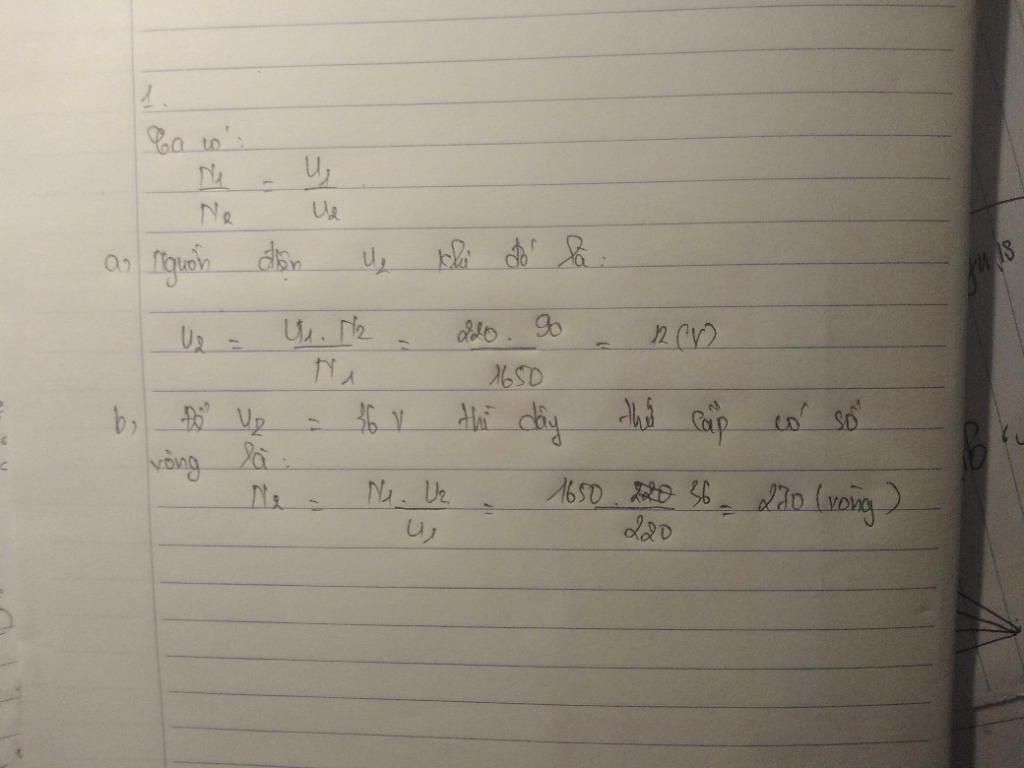 1.
Ta có:
N1/N2 = U1/U2
a, Nguồn điện U2 khi đó là:
U2 = U1. N2/N1 = 220. 90/1650 = 12 (V)
b, Để U2 = 36 V thì dây thứ cấp có số
vòng là:
N2 = N1. U2/U1 = 1650. 36/220 = 270 (vòng)